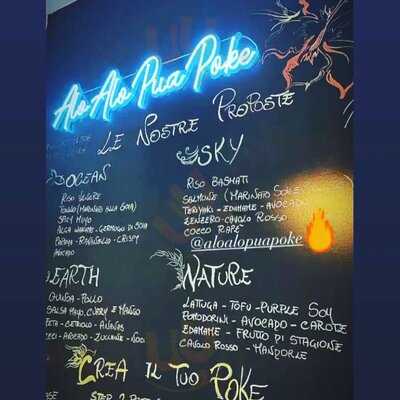 Alo Alo Pua Poke
LE NOSTRE PROPOSTE
OCEAN
RISO VENERE
TONNO (MARINATO ALLA SOIA)
SPICY MAYO
ALGA WAKAME - GERMOGLI DI SOIA
CRISPY
AVOCADO
SKY
RISO BASMATI
SALMONE (MARINATO
TERIYAKI - EDAMAME - AVOCADO
ZENZERO - CAVOLO ROSSO
COCCO RAPE'
@aloalopuapoke
EARTH
QUINOA - POLLO
SALSA MAYO, CURRY E MANGO
FETA - CETRIOLO - ANANAS
AVOCADO - ZUCCHINE - NOCI
NATURE
LATTUGA - TOFU - PURPLE SOY
POMODORINI - AVOCADO - CAROTE
EDAMAME - FRUTTO DI STAGIONE
CAVOLO ROSSO - MANDORLE
CREA IL TUO POKE
STEP 2